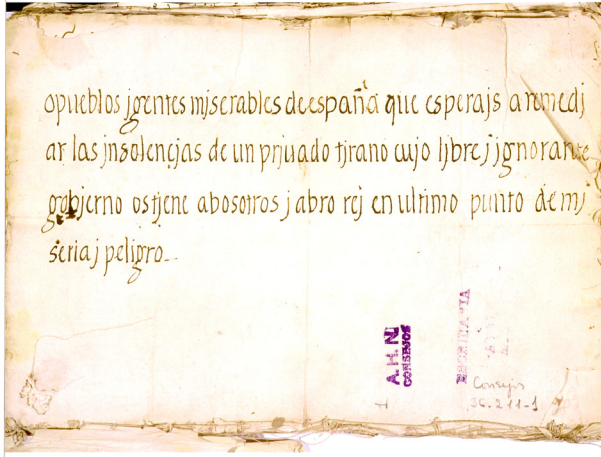 opueblos jgentes mjserables de españa que esperajs aremedj
ar las jnsolencjas de un prjuado tjrano cujo ljbre j jgnorante
gobjerno os tjene abosotros j abro rej en ultimo punto de mj
seria j peljgro
A. H. N.
CONSEJOS
Consejos
36.211-1